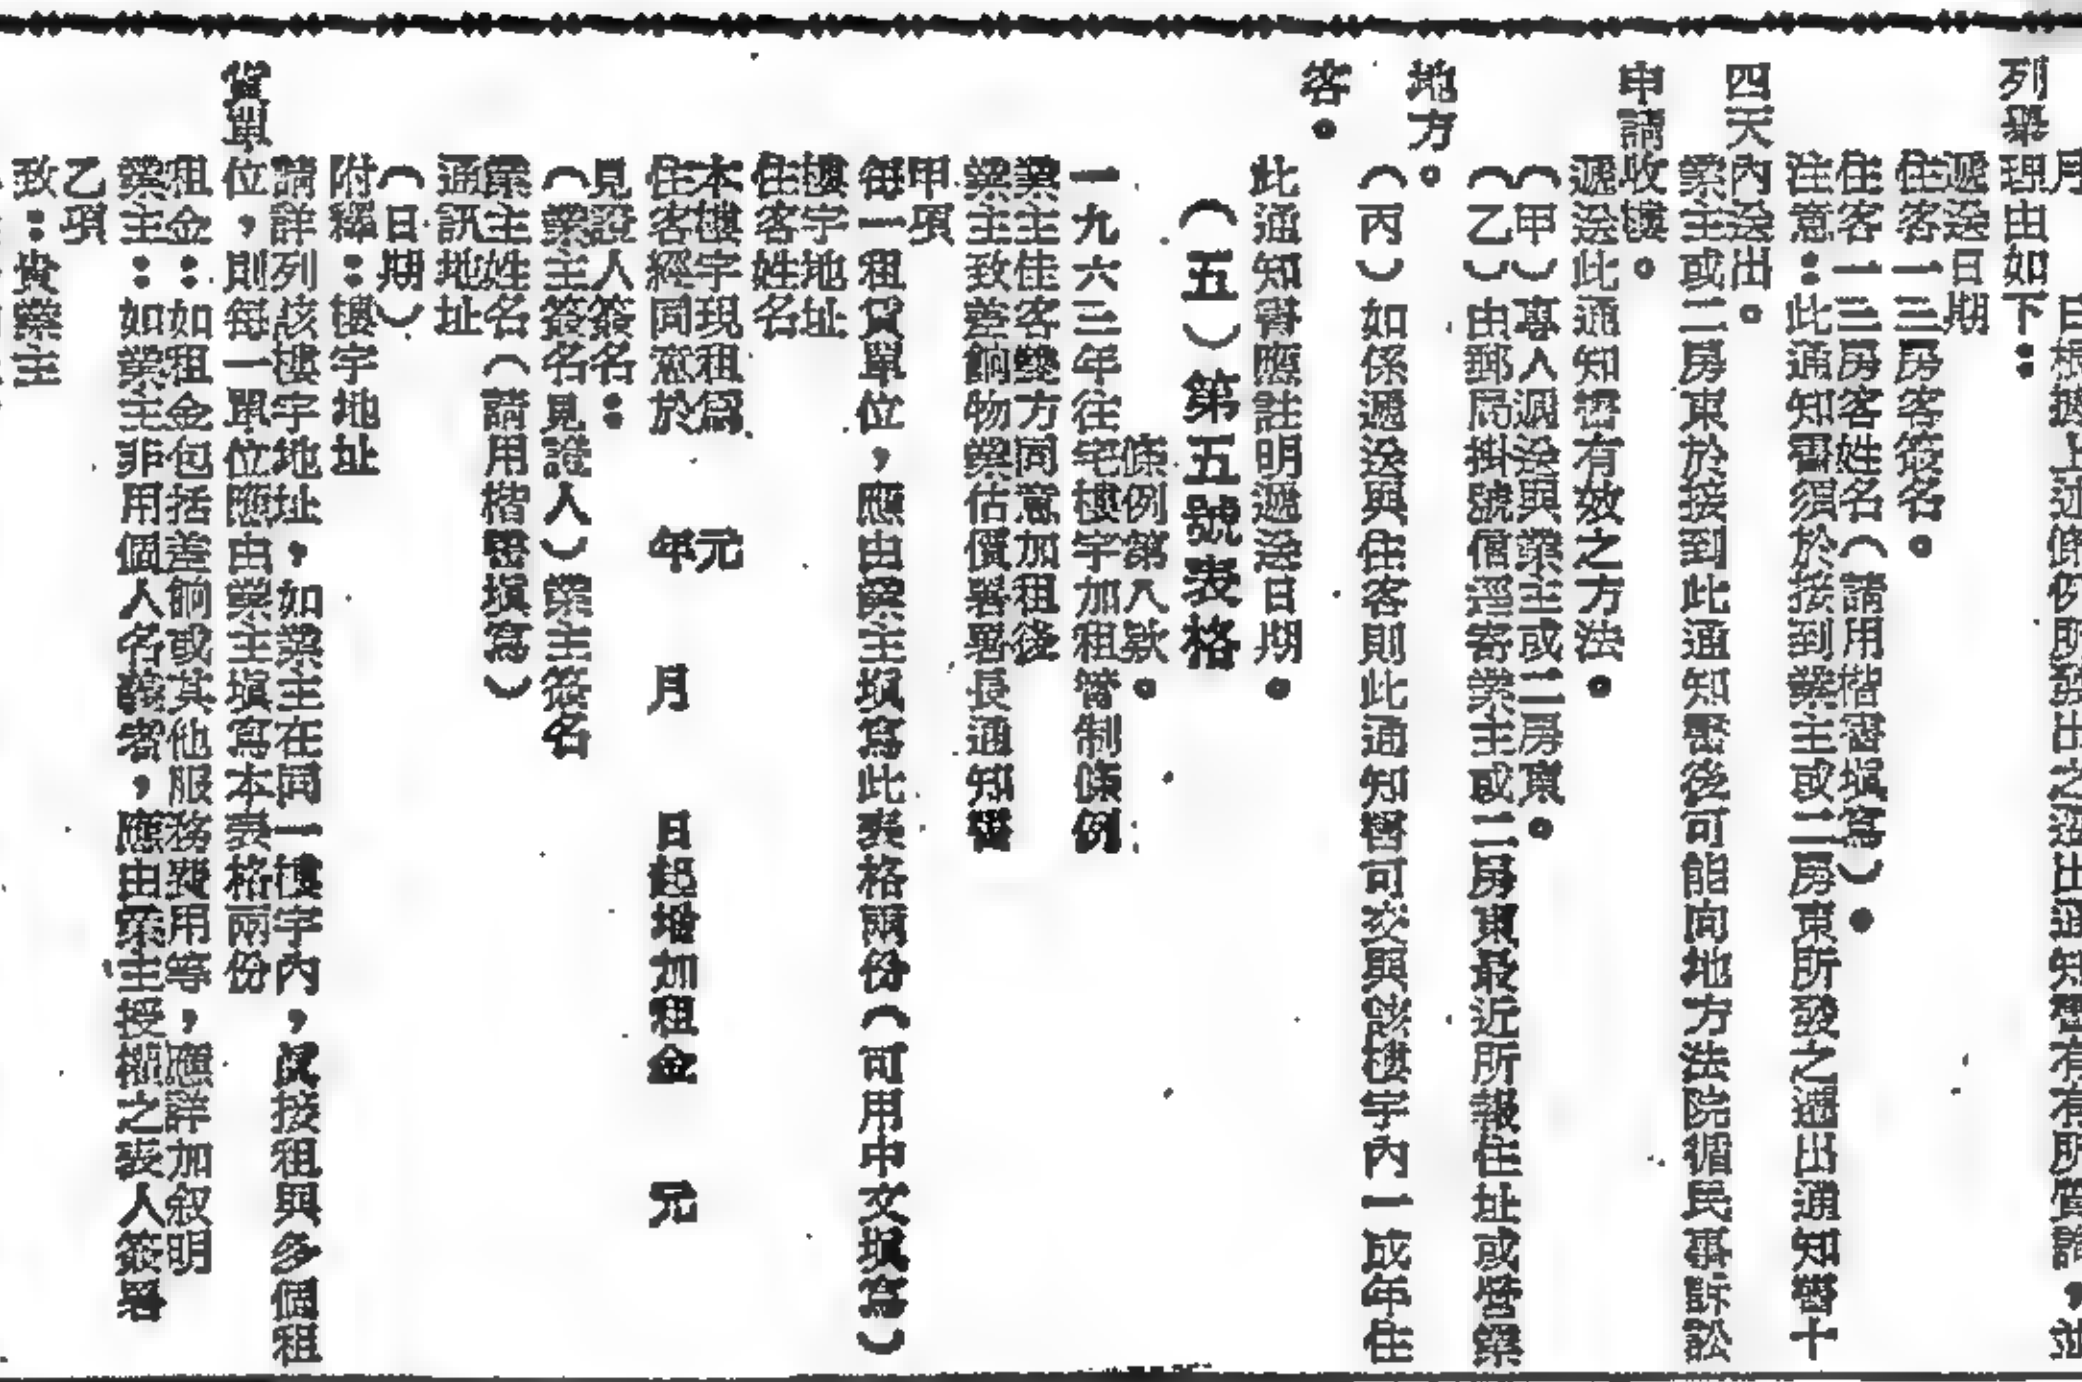 月　日根據上述條例所發出之遷出通知書有所質詢，並
列舉理由如下：
遞送日期
住客一三房客簽名。
住客一三房客姓名（請用楷書填寫）。
注意：此通知書須於接到業主或二房東所發之遷出通知書十
四天內送出。
業主或二房東於接到此通知書後可能向地方法院循民事訴訟
申請收樓。
遞送此通知書有效之方法。
（甲）專人遞送與業主或二房東。
（乙）由郵局掛號信逕寄業主或二房東最近所報住址或營業
地方。
（丙）如係遞送與住客則此通知書可交與該樓宇內一成年住
客。
此通知書應註明遞送日期。
（五）第五號表格
條例第八欵。
一九六三年住宅樓宇加租管制條例
業主住客雙方同意加租後
業主致差餉物業估價署署長通知書
甲項
每一租貸單位，應由業主填寫此表格兩份（可用中文填寫）
樓宇地址
住客姓名
本樓宇現租爲　元
住客經同意於　年　月　日起增加租金　元
見證人簽名：
（業主簽名見證人）業主簽名
業主姓名（請用楷書填寫）
通訊地址
（日期）
附釋：樓宇地址
請詳列該樓宇地址，如業主在同一樓宇內，直接租與多個租
貸單位，則每一單位應由業主填寫本表格兩份
租金：如租金包括差餉或其他服務費用等，應詳加叙明
業主：如業主非用個人名義者，應由業主授權之表人簽署
乙項
致：貴業主